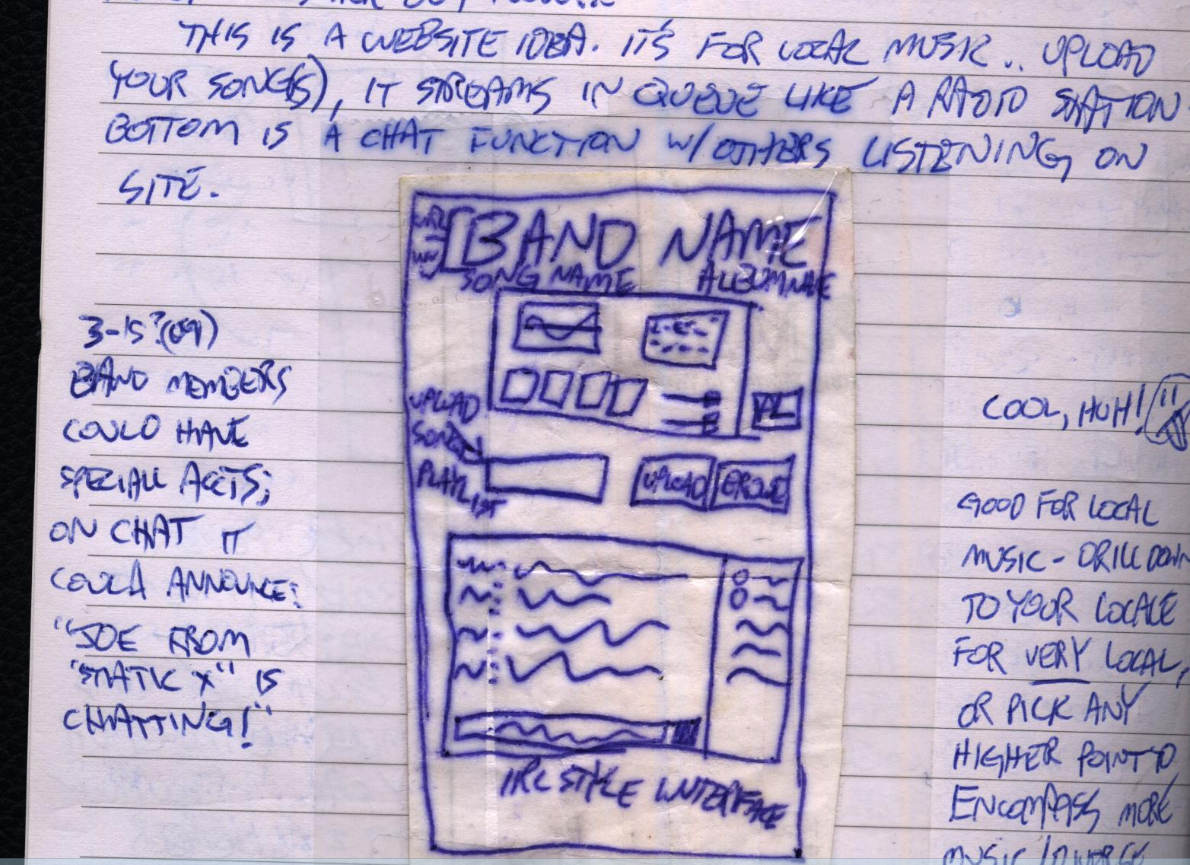 THIS IS A WEBSITE IDEA. IT'S FOR LOCAL MUSIC.. UPLOAD
YOUR SONG(S), IT STREAMS IN QUEUE LIKE A RADIO STATION
BOTTOM IS A CHAT FUNCTION W/ OTHERS LISTENING ON
SITE.
BAND NAME
SONG NAME ALBUM NAME
UPLOAD
SONGS
PLAYLIST
UPLOAD BROWSE
IRC STYLE INTERFACE
3-15?(09)
BAND MEMBERS
COULD HAVE
SPECIALL ACCTS;
ON CHAT IT
COULD ANNOUNCE:
"JOE FROM
"STATIC X" IS
CHATTING!"
COOL, HUH!
GOOD FOR LOCAL
MUSIC - DRILL DOWN
TO YOUR LOCALE
FOR VERY LOCAL,
OR PICK ANY
HIGHER POINT TO
ENCOMPASS MORE
MUSIC /